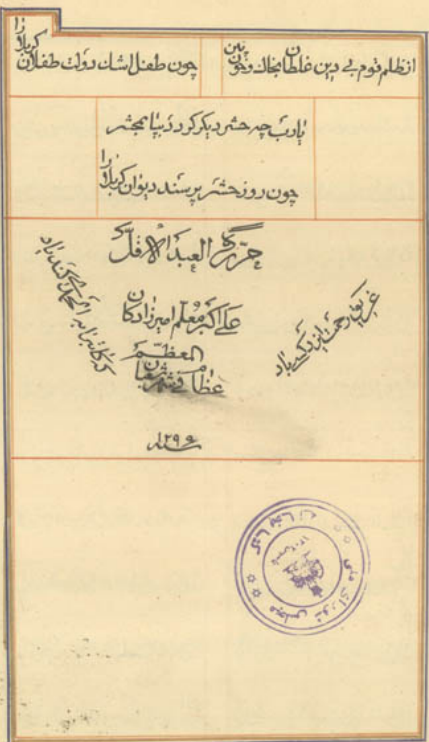 از ظلم قوم بی دین غلطان بخاک و خونین
چون طفل اشک دولت طفلان کربلا را
یارب چه حشر دیگر کردد بپا بمحشر
چون روز حشر پرسند دیوان کربلا را
حرره العبد الاقل
علی اکبر معلم امیرزادکان
المعظم
عظام فی شهر شعبان
سنه ۱۲۹۹
غریق رحمت ایزد کسی باد
که کاتب را به الحمدی کند یاد
کتابخانه
مجلس شورای ملی